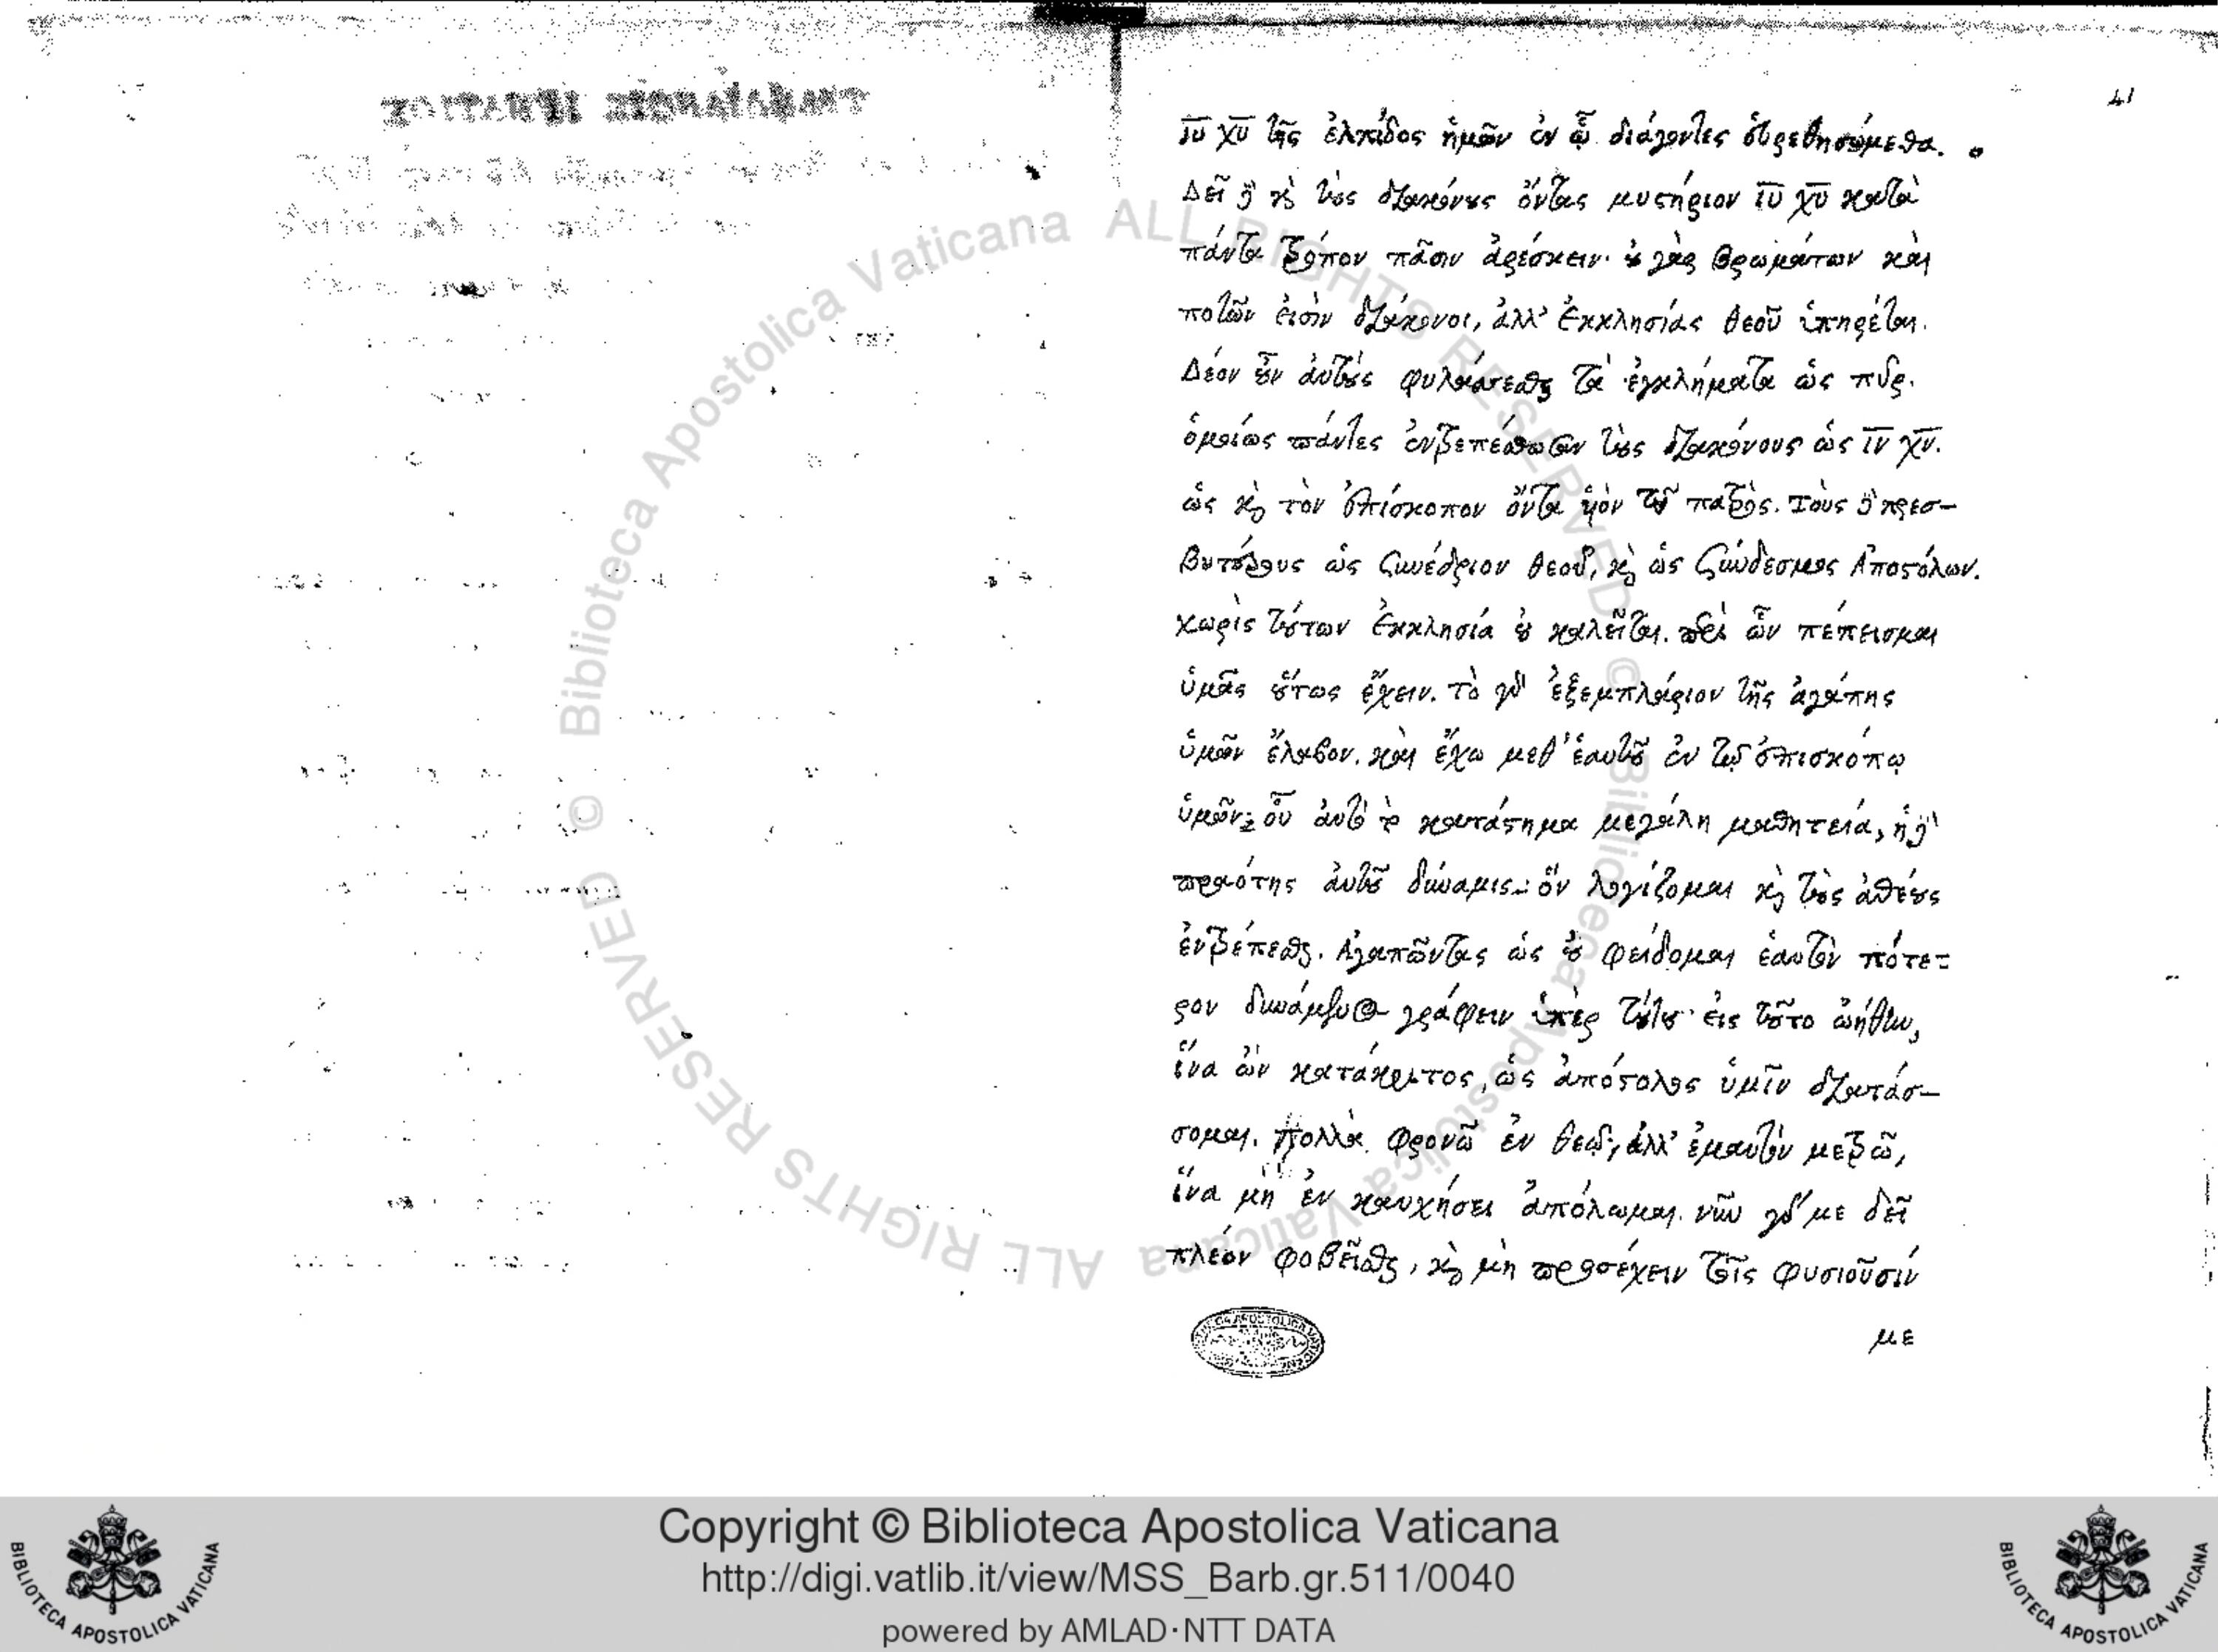 41
ιῦ χῦ τῆς ἐλπίδος ἡμῶν ἐν ᾧ διάγοντες εὑρεθησώμεθα.
Δεῖ δὲ καὶ τοὺς διακόνους ὄντας μυστήριον ιῦ χῦ κατὰ
πάντα τρόπον πᾶσιν ἀρέσκειν· οὐ γὰρ βρωμάτων καὶ
ποτῶν εἰσὶν διάκονοι, ἀλλ' ἐκκλησίας θεοῦ ὑπηρέται.
Δέον οὖν αὐτοὺς φυλάσσεσθαι τὰ ἐγκλήματα ὡς πῦρ.
ὁμοίως πάντες ἐντρεπέσθωσαν τοὺς διακόνους ὡς ιν χν.
ὡς καὶ τὸν ἐπίσκοπον ὄντα υἱὸν τοῦ πατρός. Τοὺς δὲ πρεσ-
βυτέρους ὡς συνέδριον θεοῦ, καὶ ὡς σύνδεσμος Ἀποστόλων.
χωρὶς τούτων ἐκκλησία οὐ καλεῖται. περὶ ὧν πέπεισμαι
ὑμᾶς οὕτως ἔχειν. τὸ γὰρ ἐξεμπλάριον τῆς ἀγάπης
ὑμῶν ἔλαβον. καὶ ἔχω μεθ' ἑαυτοῦ ἐν τῷ ἐπισκόπῳ
ὑμῶν· οὗ αὐτὸ τὸ κατάστημα μεγάλη μαθητεία, ἡ δὲ
πραότης αὐτοῦ δύναμις· ὃν λογίζομαι καὶ τοὺς ἀθέους
ἐντρέπεσθαι. Ἀγαπῶντας ὡς οὐ φείδομαι ἑαυτὸν πότε-
ρον δυνάμενος γράφειν ὑπὲρ τούτου εἰς τοῦτο ὠήθην,
ἵνα ὢν κατάκριτος, ὡς ἀπόστολος ὑμῖν διατάσ-
σομαι. πολλὰ φρονῶ ἐν θεῷ, ἀλλ' ἐμαυτὸν μετρῶ,
ἵνα μὴ ἐν καυχήσει ἀπόλωμαι. νῦν γάρ με δεῖ
πλέον φοβεῖσθαι, καὶ μὴ προσέχειν τοῖς φυσιοῦσίν
με
© Biblioteca Apostolica Vaticana ALL RIGHTS RESERVED © Biblioteca Apostolica Vaticana ALL RIGHTS RESERVED
Copyright © Biblioteca Apostolica Vaticana
http://digi.vatlib.it/view/MSS_Barb.gr.511/0040
powered by AMLAD·NTT DATA
BIBLIOTECA APOSTOLICA VATICANA
BIBLIOTECA APOSTOLICA VATICANA